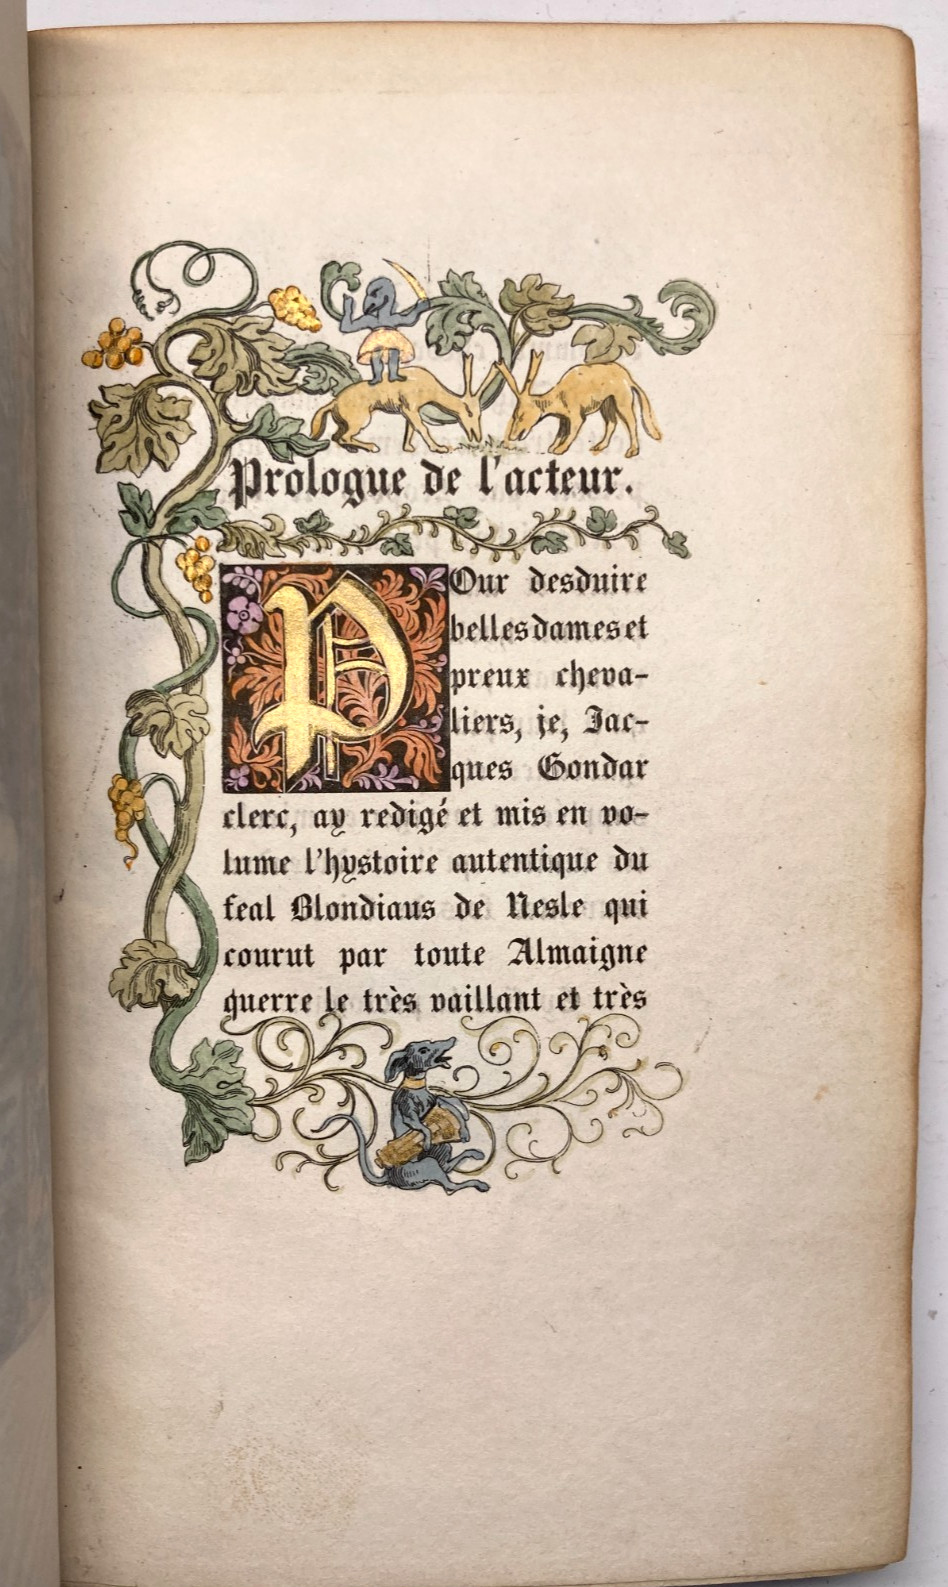 Prologue de l'acteur.
POur desduire
belles dames et
preux cheva-
liers, je, Jac-
ques Gondar
clerc, ay redigé et mis en vo-
lume l'hystoire autentique du
feal Blondiaus de Nesle qui
courut par toute Almaigne
querre le très vaillant et très